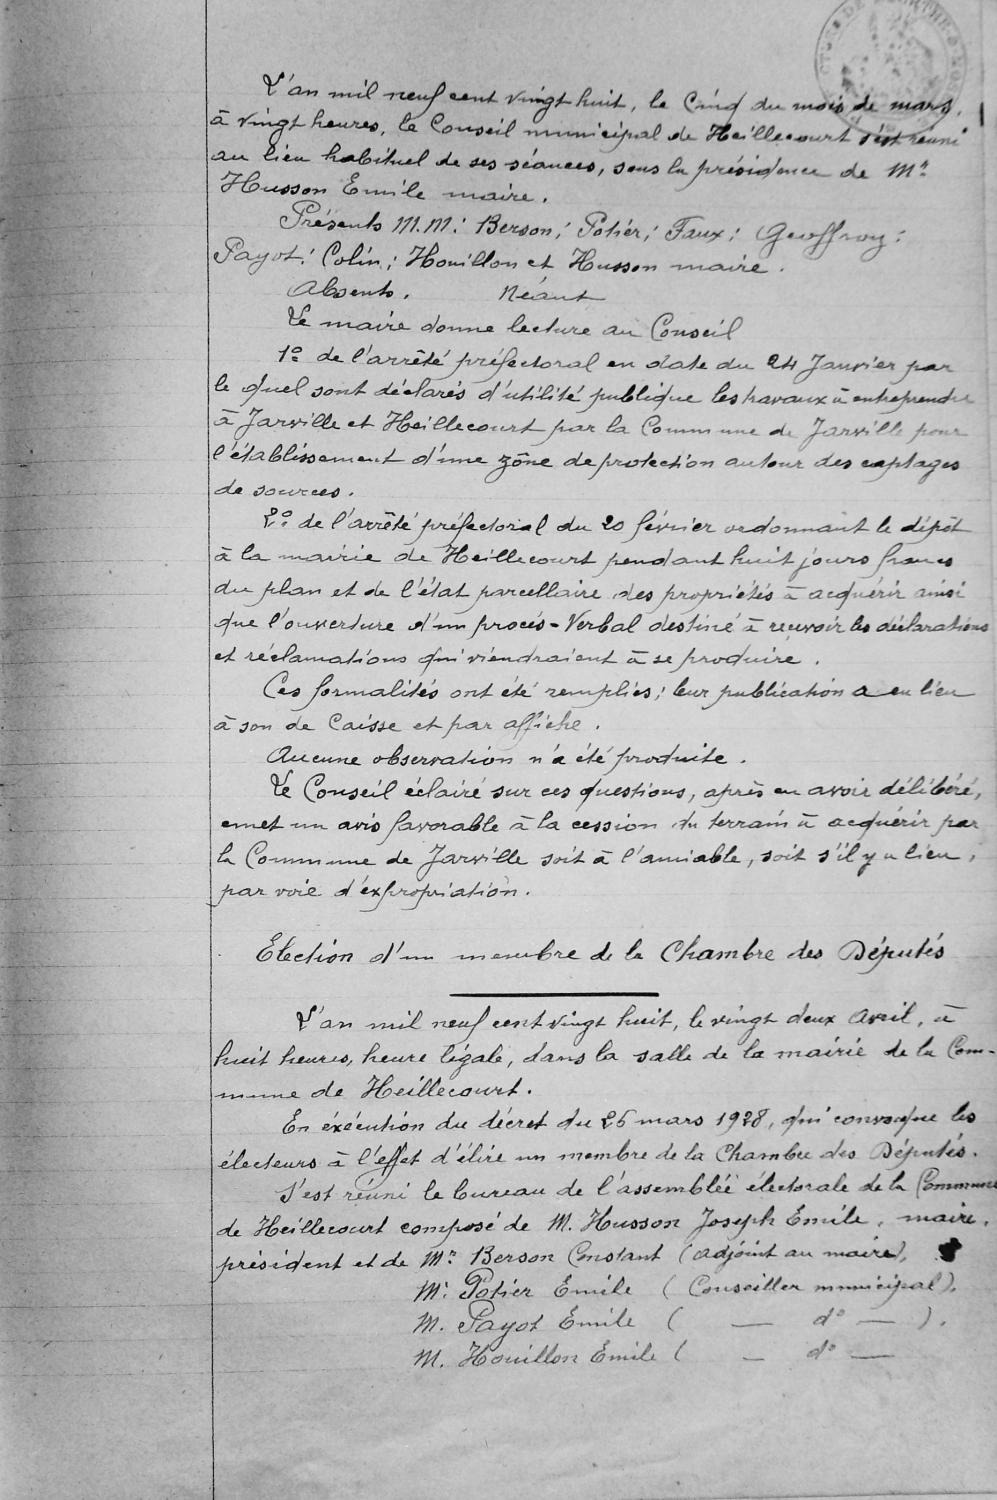 L'an mil neuf cent vingt huit, le Cinq du mois de mars,
à vingt heures, le Conseil municipal de Heillecourt s'est réuni
au lieu habituel de ses séances, sous la présidence de Mr
Husson Emile maire.
Présents M.M: Berson; Potier; Faux; Geoffroy;
Payot; Colin; Houillon et Husson maire.
Absents. Néant
Le maire donne lecture au Conseil
1º de l'arrêté préfectoral en date du 24 Janvier par
le quel sont déclarés d'utilité publique les travaux à entreprendre
à Jarville et Heillecourt par la Commune de Jarville pour
l'établissement d'une zône de protection autour des captages
de sources.
2º de l'arrêté préfectoral du 20 février ordonnant le dépôt
à la mairie de Heillecourt pendant huit jours francs
du plan et de l'état parcellaire des propriétés à acquérir ainsi
que l'ouverture d'un procés-Verbal destiné à recevoir les déclarations
et réclamations qui viendraient à se produire.
Ces formalités ont été remplies; leur publication a eu lieu
à son de Caisse et par affiche.
Aucune observation n'a été produite.
Le Conseil éclairé sur ces questions, après en avoir délibéré,
emet un avis favorable à la cession du terrain à acquérir par
la Commune de Jarville soit à l'amiable, soit s'il y a lieu,
par voie d'expropriation.
Election d'un membre de la Chambre des Députés
L'an mil neuf cent vingt huit, le vingt deux Avril, à
huit heures, heure légale, dans la salle de la mairie de la Com-
mune de Heillecourt.
En éxécution du décret du 26 mars 1928, qui convoque les
électeurs à l'effet d'élire un membre de la Chambre des Députés.
S'est réuni le bureau de l'assemblée électorale de la Commune
de Heillecourt composé de M. Husson Joseph Emile, maire,
président et de Mr Berson Constant (adjoint au maire),
M. Potier Emile (Conseiller municipal),
M. Payot Emile ( — do — ).
M. Houillon Emile ( — do —